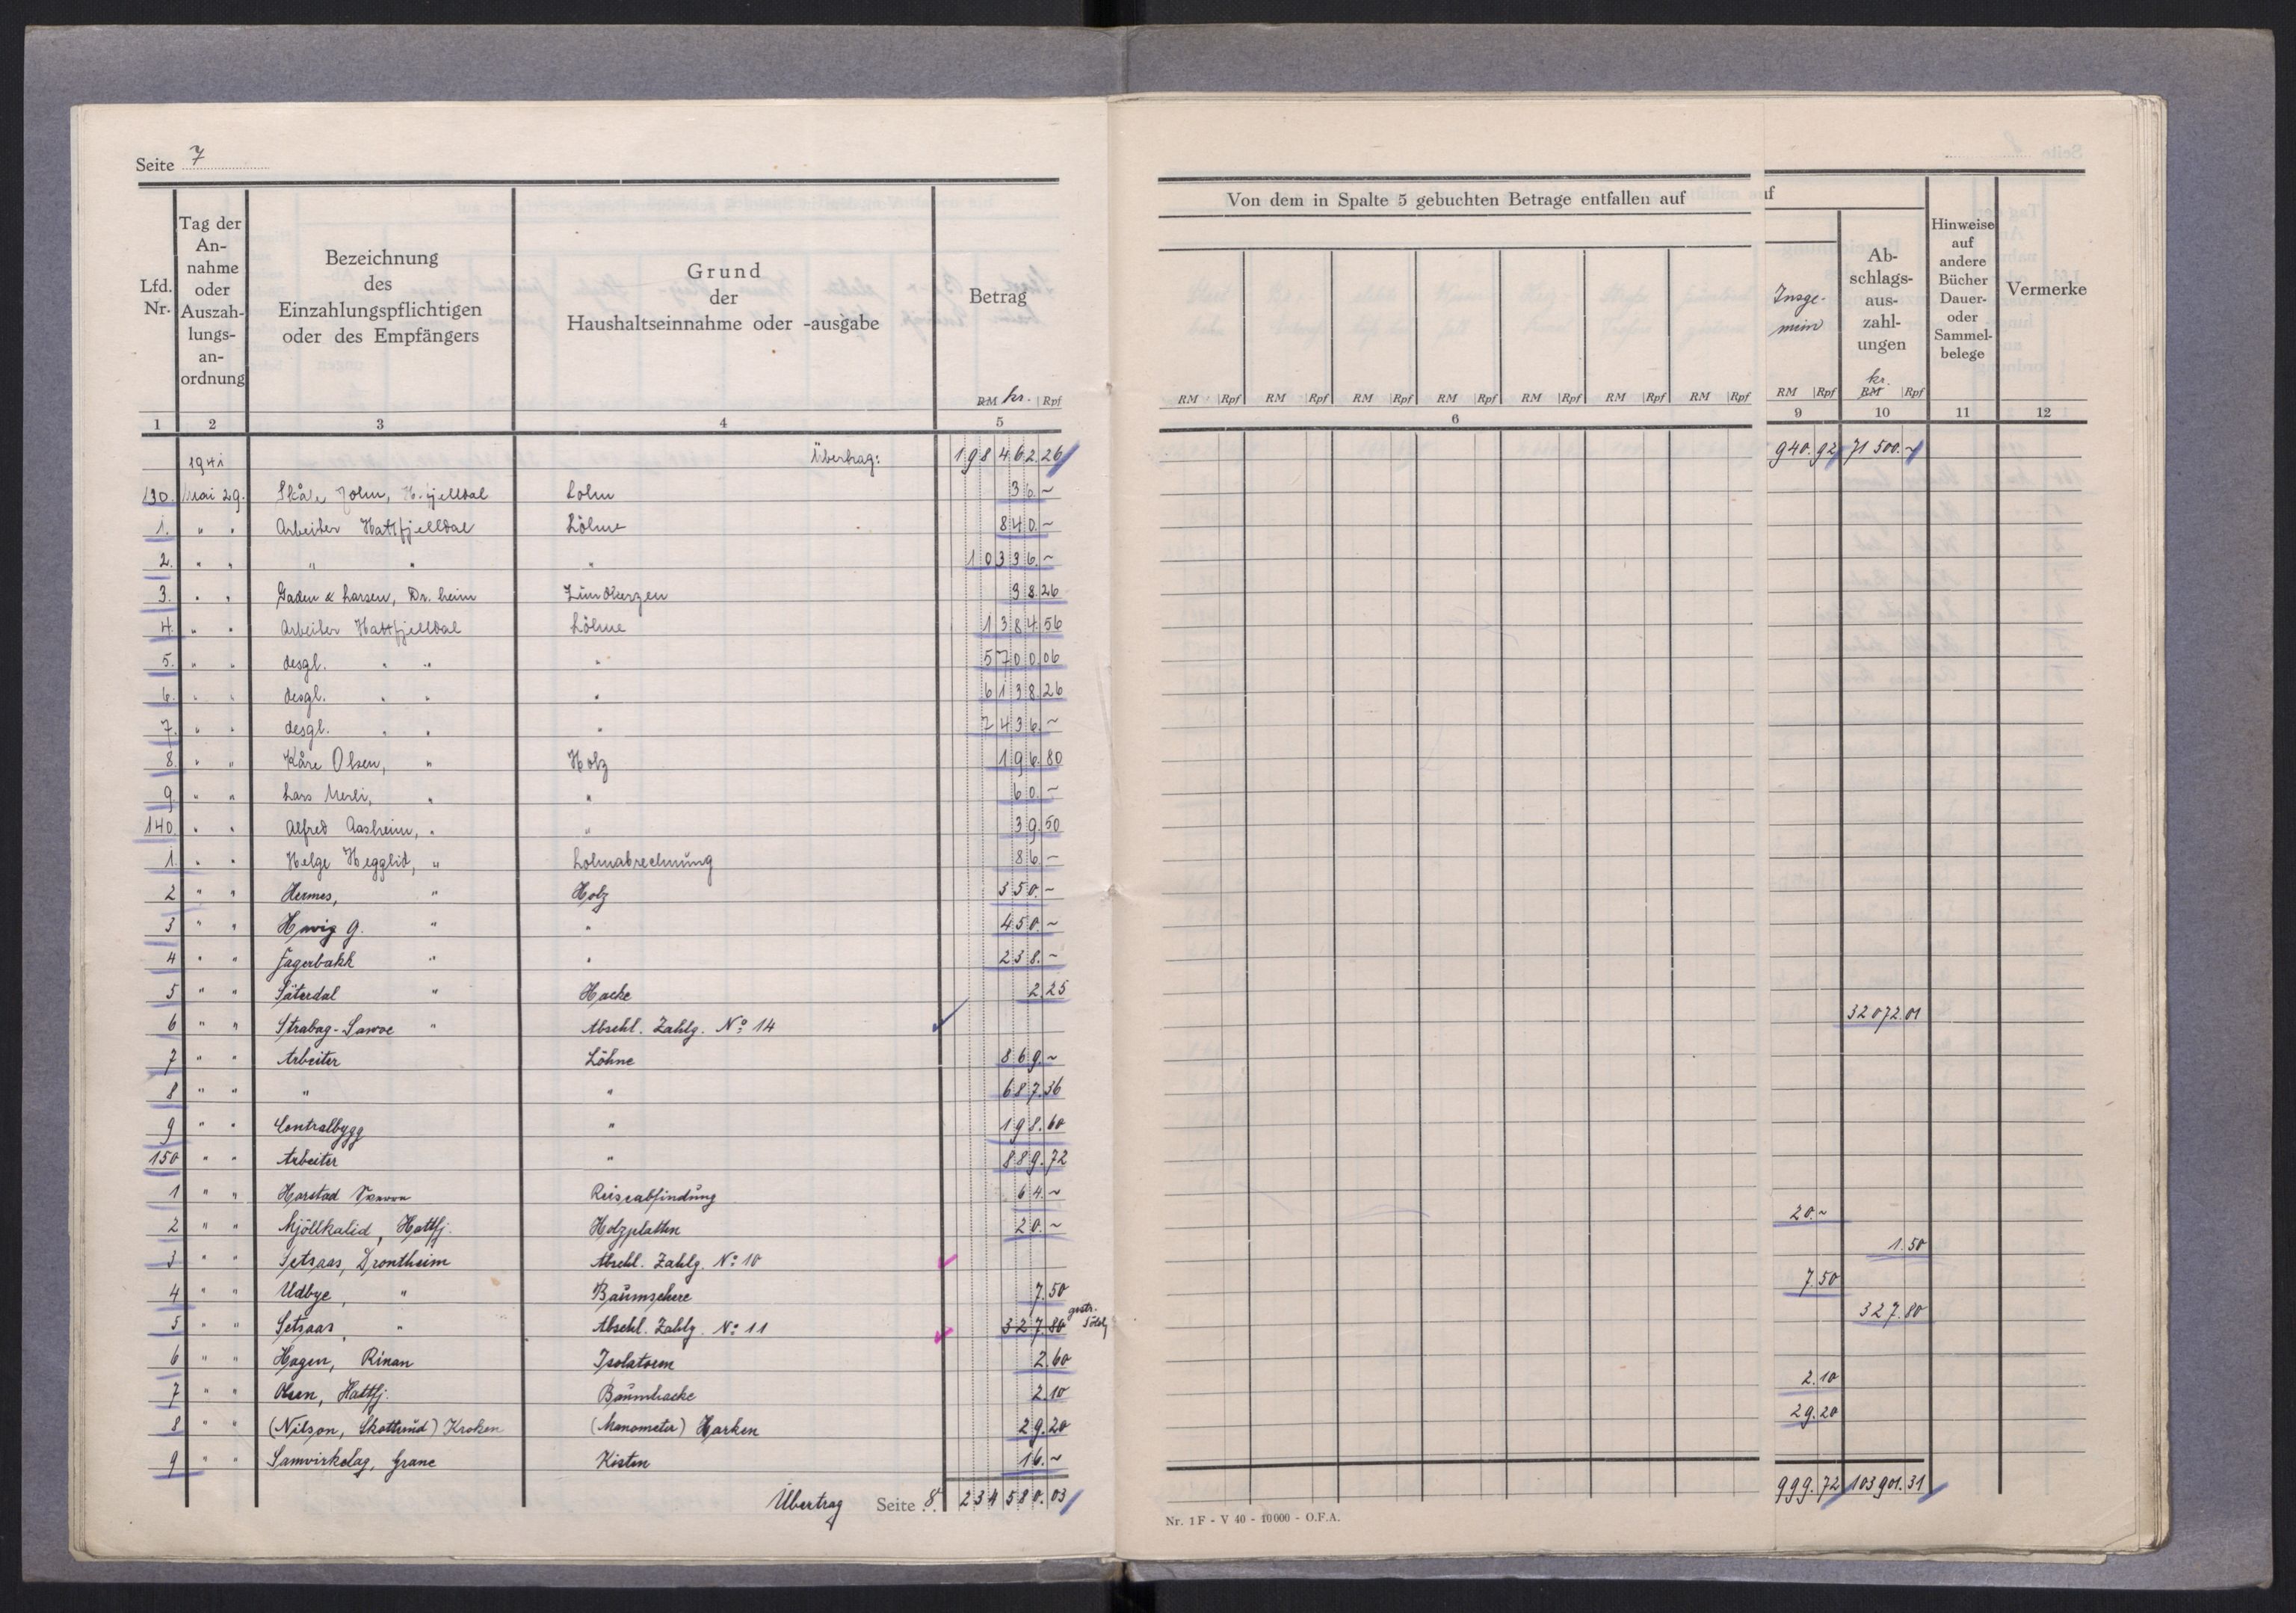 Seite 7
Lfd. Nr.
Tag der An- nahme oder Auszah- lungs- an- ordnung
Bezeichnung des Einzahlungspflichtigen oder des Empfängers
Grund der Haushaltseinnahme oder -ausgabe
Betrag
RM kr. Rpf
Von dem in Spalte 5 gebuchten Betrage entfallen auf
RM Rpf RM Rpf RM Rpf RM Rpf RM Rpf RM Rpf RM Rpf
uf
Insge- mein
RM Rpf
Ab- schlags- aus- zahl- ungen
kr. RM Rpf
Hinweise auf andere Bücher Dauer- oder Sammel- belege
Vermerke
1 2 3 4 5 6 9 10 11 12
1941 Übertrag: 198 462.26 940.92 71 500.~
130. Mai 29. Skåle John, Lohn 36.~
1. " " Arbeiter Hattfjelldal Löhne 840.~
2. " " " " " 10336.~
3. " " Gaden & Larsen, Dr. heim Zündkerzen 98.26
4. " " Arbeiter Hattfjelldal Löhne 1384.56
5. " " desgl. " " " 5700.06
6. " " desgl. " " " 6138.26
7. " " desgl. " " " 2436.~
8. " " Kåre Olsen, " Holz 196.80
9. " " Lars " " 60.-
140. " " Alfred Aasheim, " " 39.50
1. " " Helge Hegglid, " Lohnabrechnung 86.-
2 " " Hermes, " Holz 350.~
3 " " G. " " 450.~
4 " " Fagerbakk " " 238.~
5 " " Säterdal " Hacke 2.25
6 " " Strabag- " Abschl. Zahlg. No 14 32072.01
7 " " Arbeiter Löhne 869.~
8 " " " " 687.36
9 " " Centralbygg " 198.60
150 " " Arbeiter " 889.72
1 " " Harstad Reiseabfindung 64.~
2 " " Mjöllkalid, Hattfj. Holzplatten 20.~ 20.~
3 " " Setsaas, Drontheim Abschl. Zahlg. No 10 1.50
4 " " Udbye, " Baumschere 7.50 7.50
5 " " Setsaas, " Abschl. Zahlg. No 11 327.80 gestr. 327.80
6 " " Hagen, Rinan Isolatoren 2.60
7 " " Olsen, Hattfj. Baumhacke 2.10 2.10
8 " " (Nilson, Skottrud) Kroken (Manometer) Harken 29.20 29.20
9 " " Samvirkelag, Grane Kisten 16.~
Übertrag Seite 8. 234 580.03 999.72 103 901.31
Nr. 1 F - V 40 - 10 000 - O.F.A.